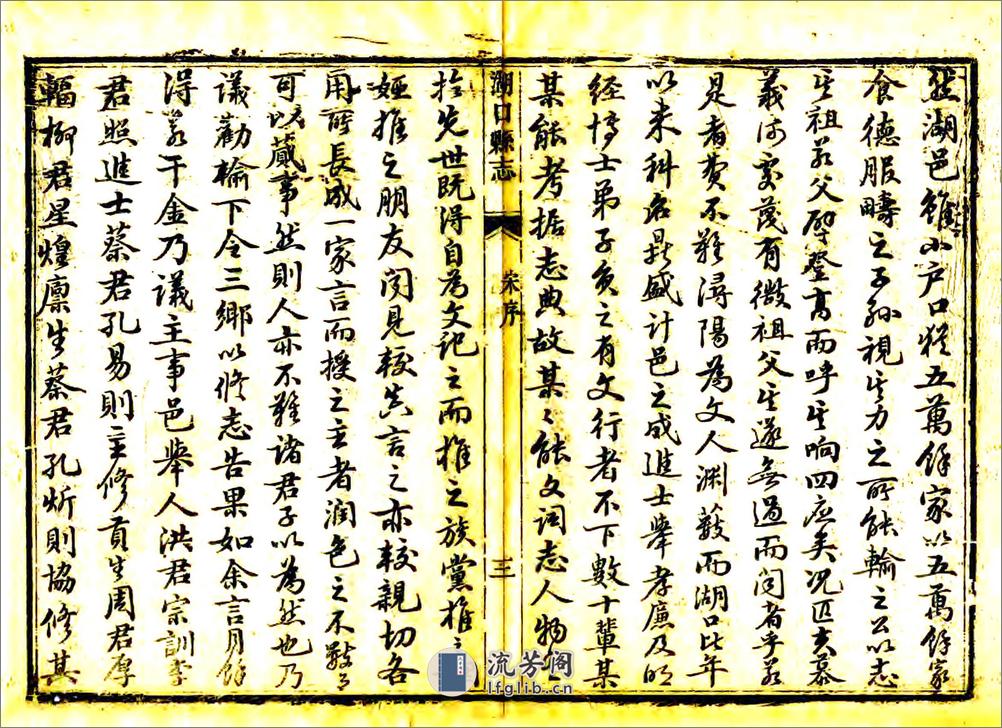 湖邑雖小户口猶五萬餘家以五萬餘家
食德服疇之子孫視其力之所能輸之公以志
其祖若父登高而呼其响四应矣况匹夫慕
義何處蔑有微祖父其遂無過而问者乎若
是者費不難潯陽為文人渊薮而湖口比年
以来科名最盛計邑之成進士舉孝廉及明
经博士弟子员之有文行者不下數十輩某
某能考据志典故某〻能文词志人物
湖口縣志
宋序
三
於先世既得自為文记之而推之族黨推之
姬推之朋友闻見较真言之亦较親切各
用所長成一家言而授之主者润色之不
可以蕆事然則人亦不難诸君子以為然也乃
議勸輸下令三鄉以修志告果如余言月餘
得若干金乃議主事邑舉人洪君宗訓李
君照進士蔡君孔易則主修貢生周君厚
輻柳君星煌廪生蔡君孔炘則協修其
流芳阁
lfglib.cn